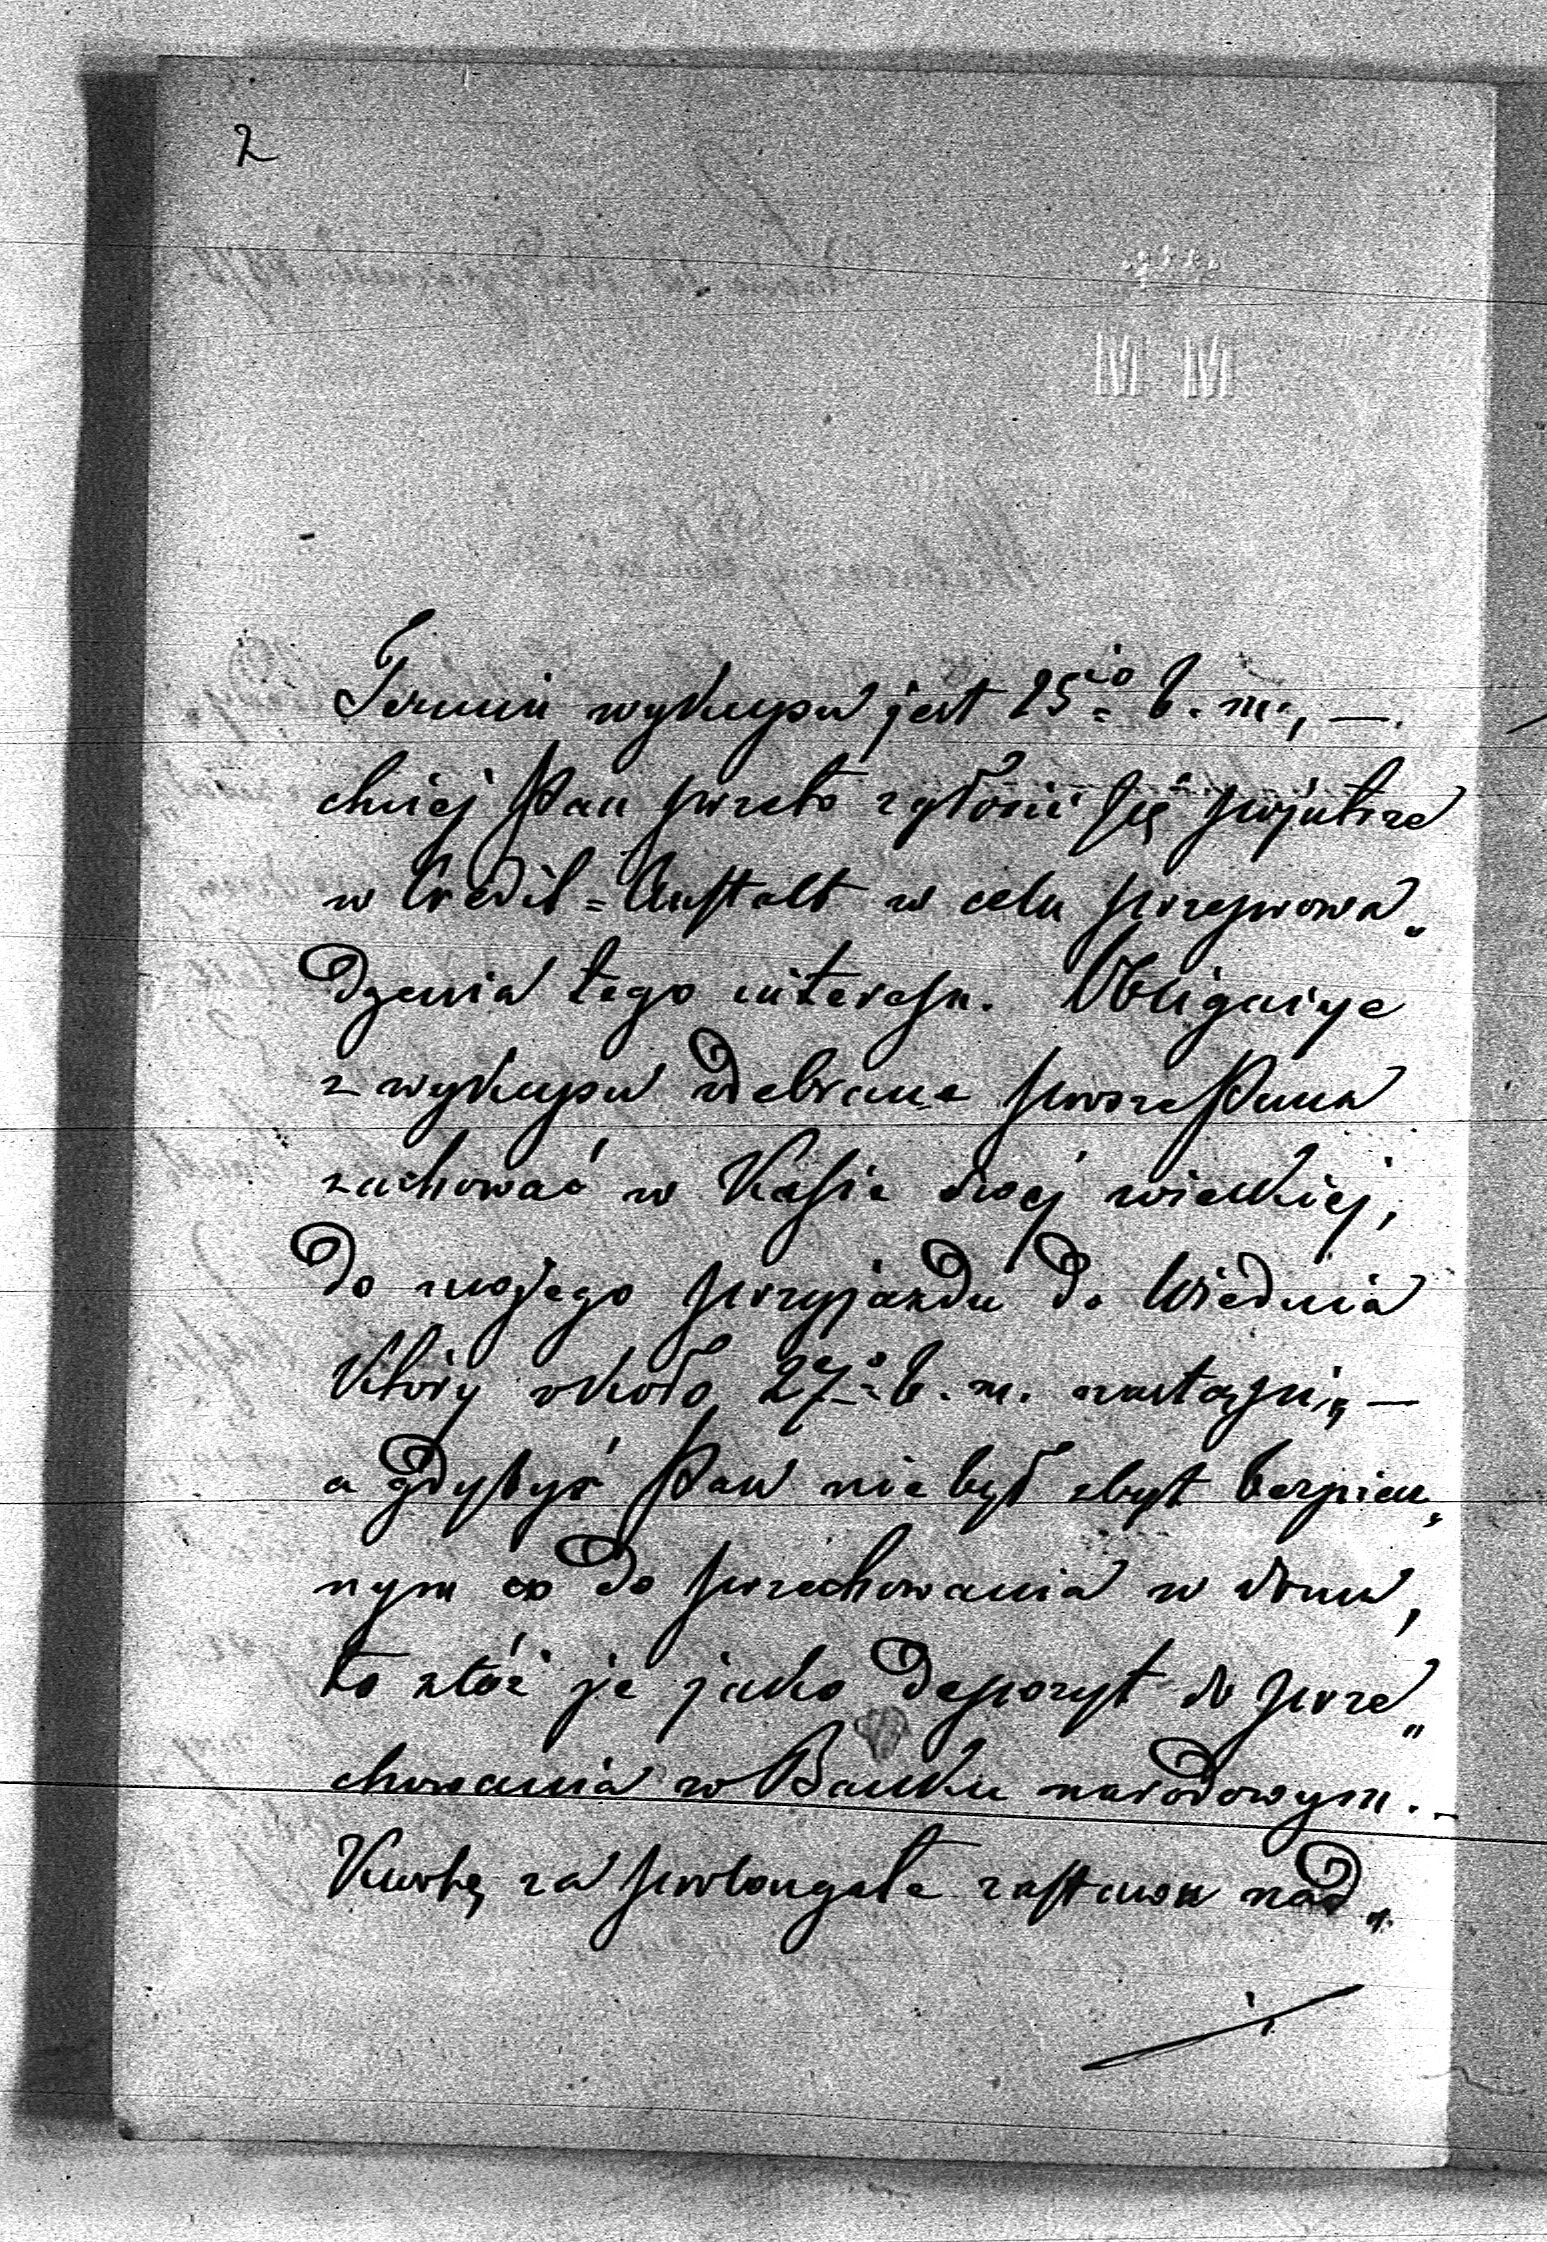 2
M M
Termin wykupu jest 25go b. m., —
chciej Pan przeto zgłosić się pojutrze
w Credit=Anstalt w celu przeprowa„
dzenia tego interesu. Obligacye
z wykupu odebrane proszę Pana
zachować w Kasie swej wielkiej,
do mojego przyjazdu do Wiednia
który około 27o b. m. nastąpi, —
a gdybyś Pan nie był zbyt bezpiecz„
nym co do przechowania w domu,
to złóż je jako depozyt do prze„
chowania w Banku narodowym. -
Kwotę za prolongatę zastawu nad„